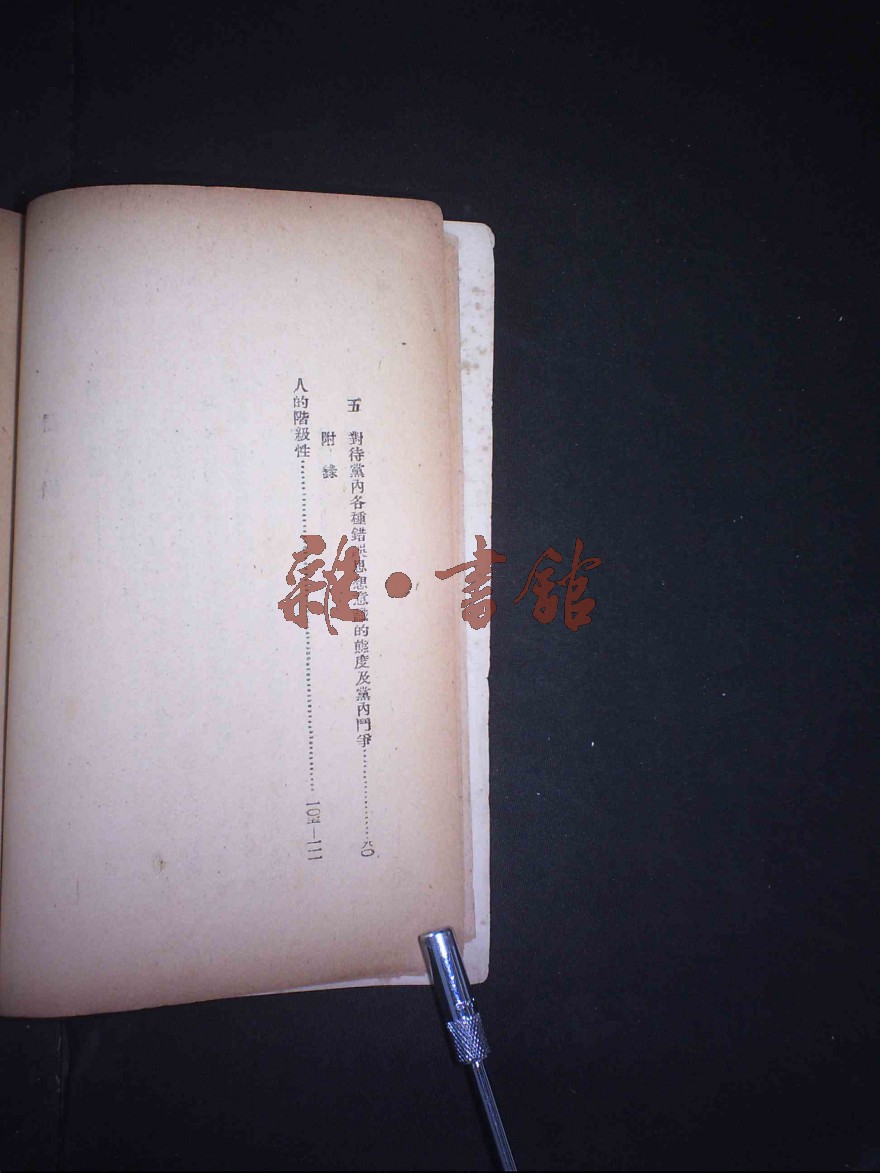 五 對待黨內各種錯誤思想意識的態度及黨內鬥爭……………………八〇
附錄
人的階級性………………………………………………一〇五—一一一
雜·書館